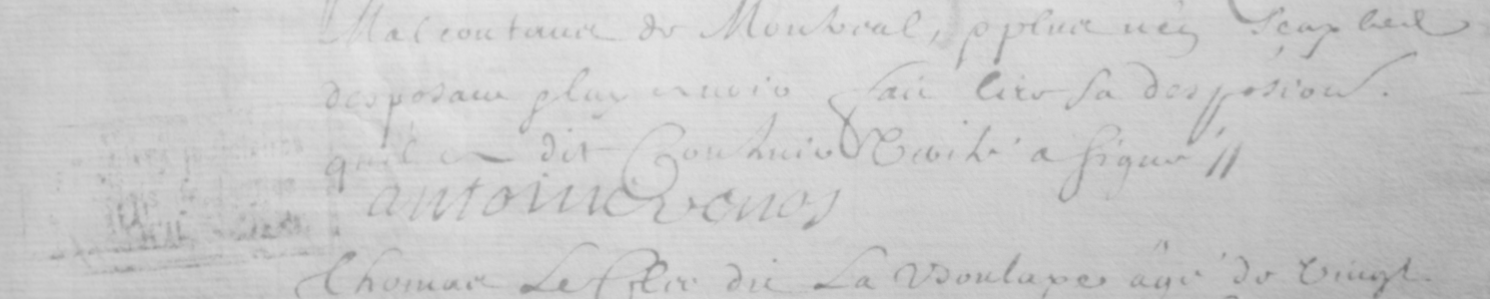 Malcontant de Montreal, pplus n'en Scay led
desposant plus envoir fait lire sa desposiou.
quil a dit Contenir Verité a signé //
antoine venos
Thomas Le dit La agé de vingt